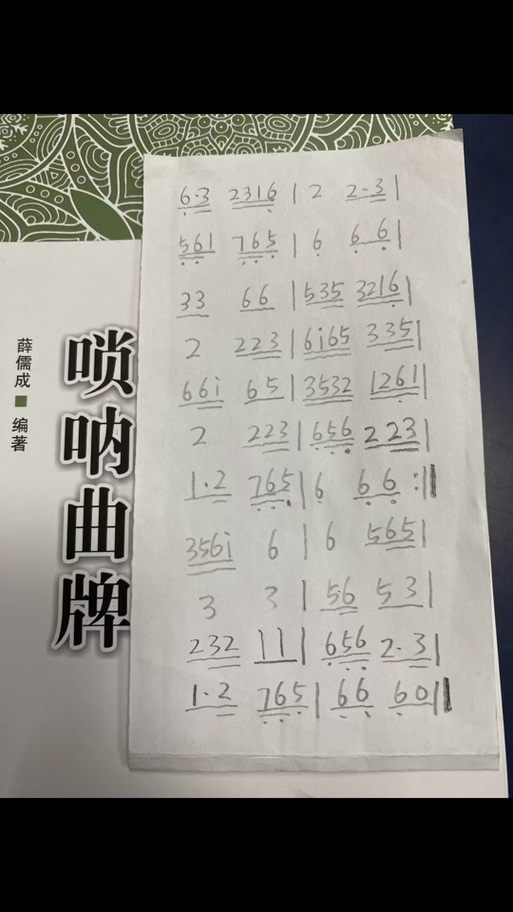 6·3 2316 | 2 2·3 |
561 765 | 6 6 6 |
33 66 | 535 3216 |
2 223 | 6i65 335 |
66i 65 | 3532 1261 |
2 223 | 656 223 |
1·2 765 | 6 66 :‖
356i 6 | 6 565 |
3 3 | 56 53 |
232 11 | 656 2·3 |
1·2 765 | 66 60 ‖
唢呐曲牌
薛儒成 ■ 编著